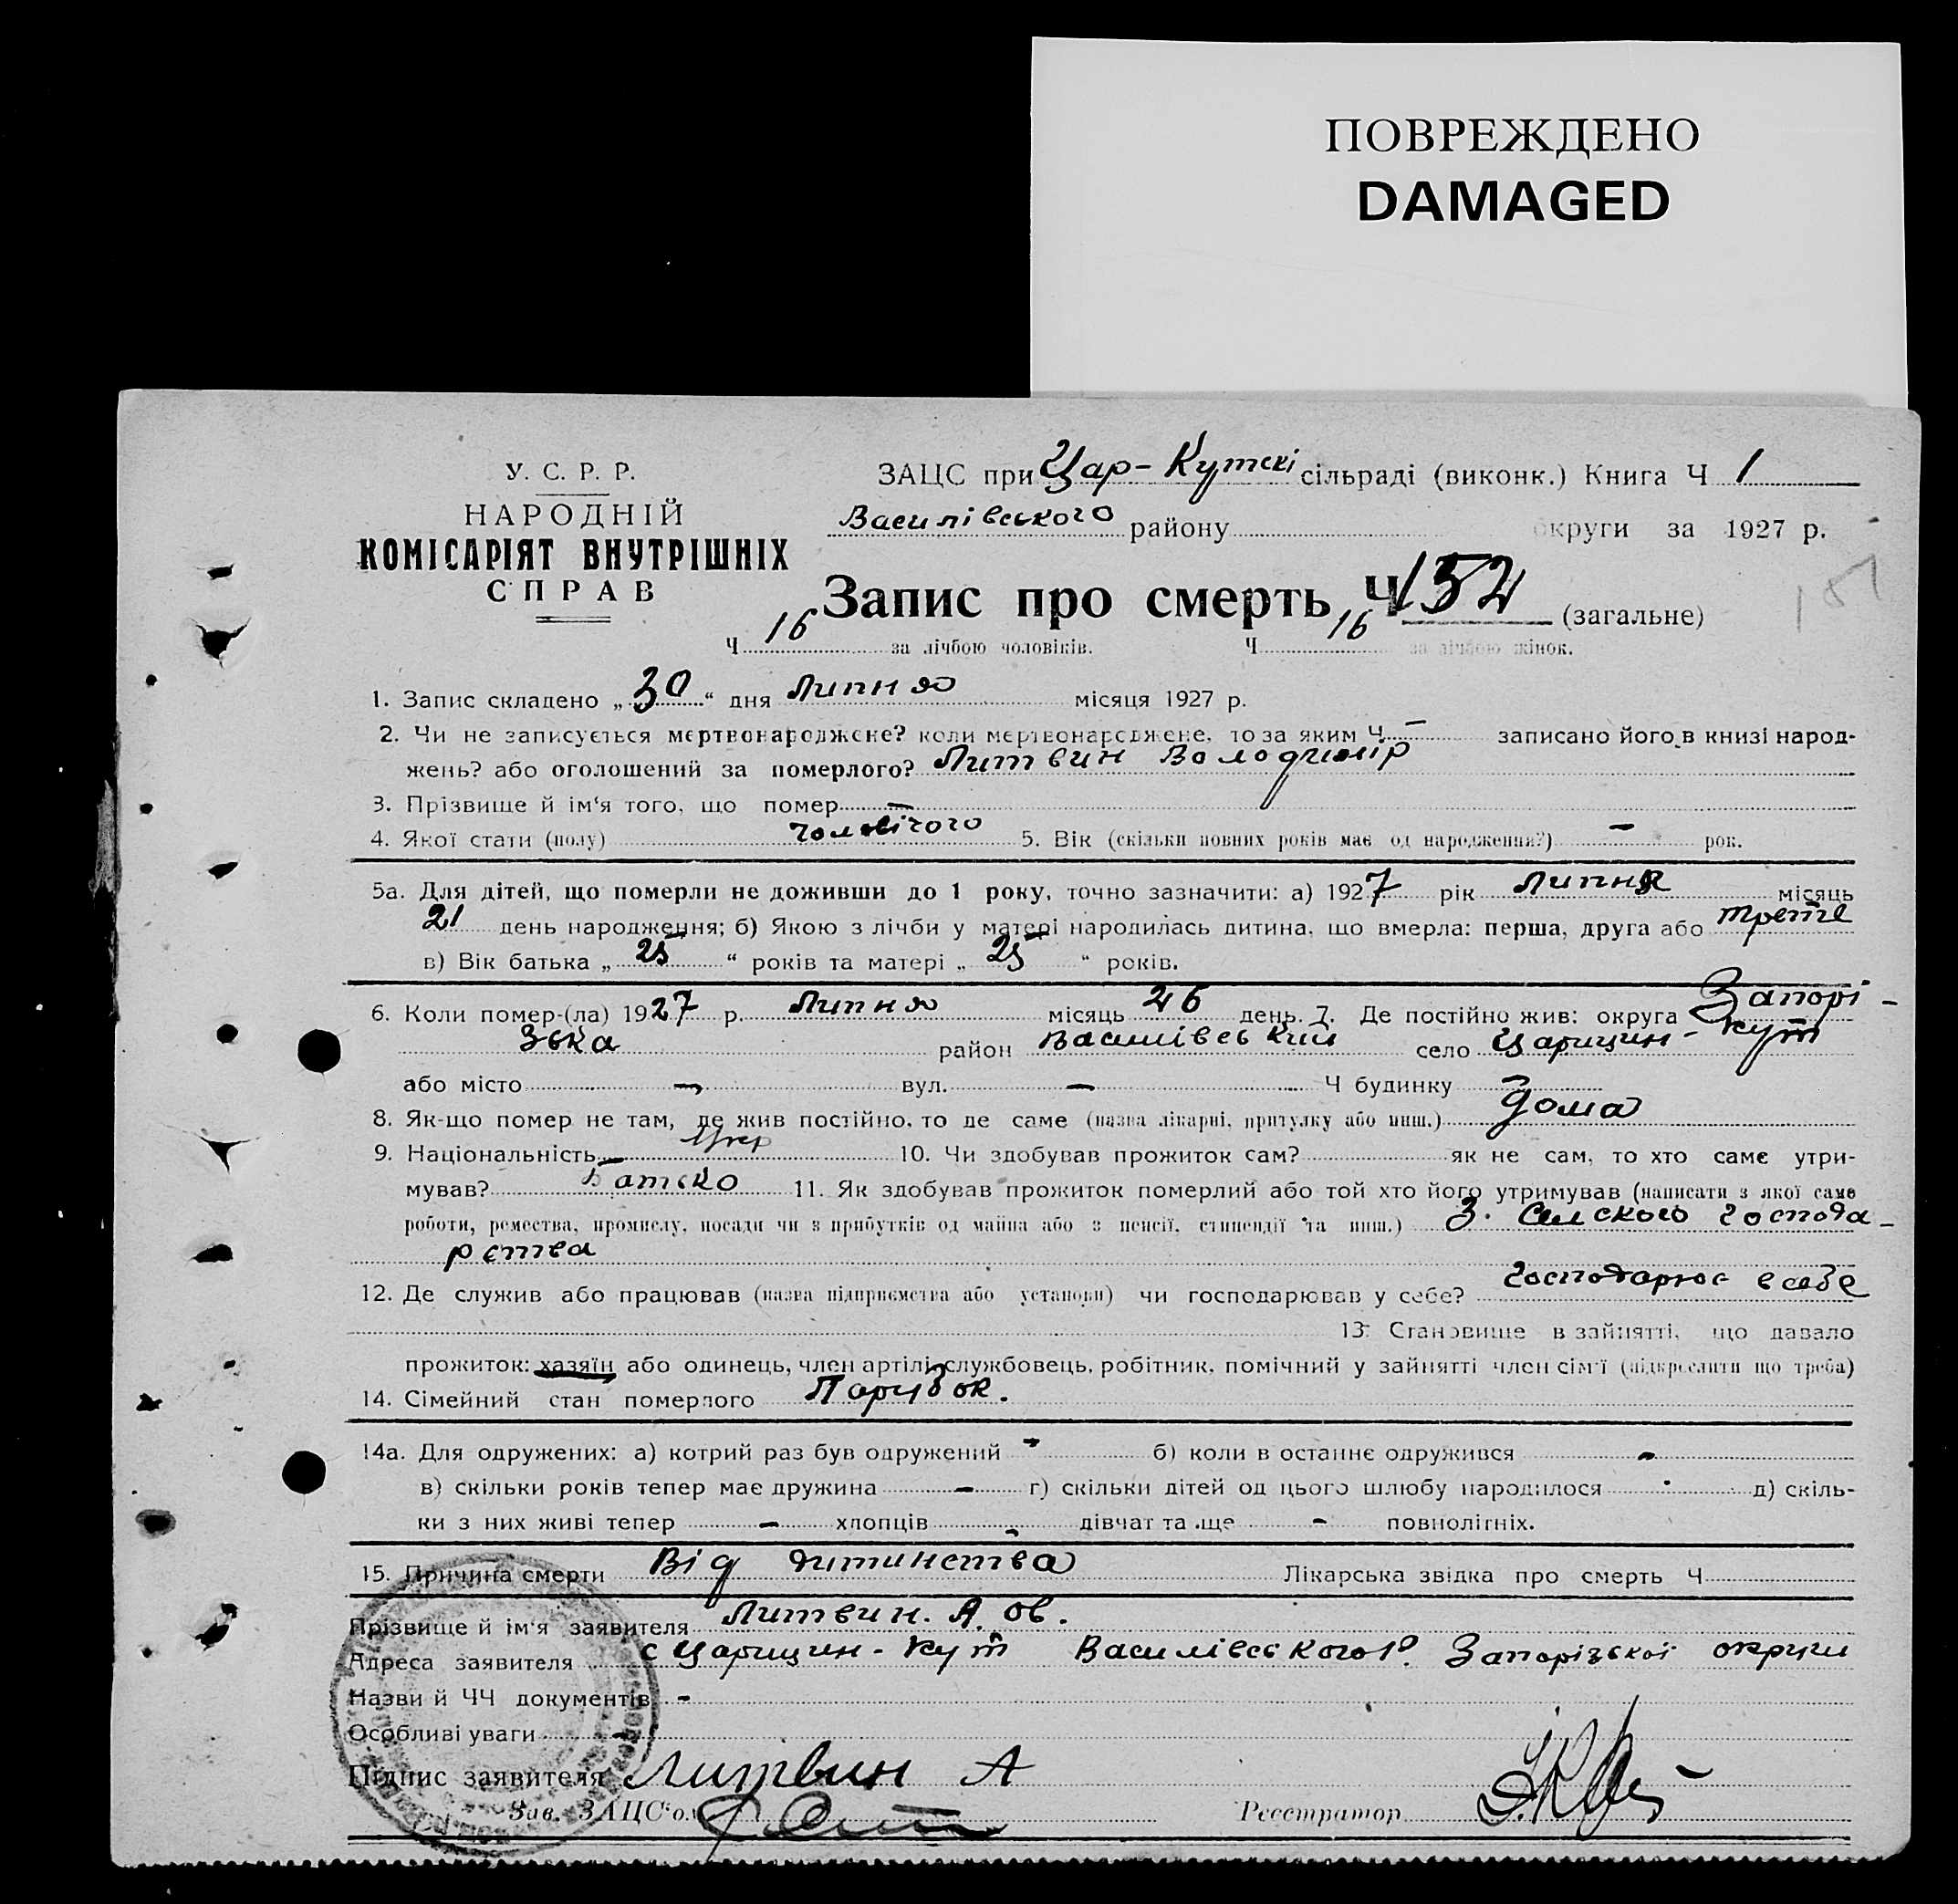 ПОВРЕЖДЕНО
DAMAGED
У. С. Р. Р.
НАРОДНІЙ
КОМІСАРІЯТ ВНУТРІШНІХ
СПРАВ
ЗАЦС при Цар-Кутскі сільраді (виконк.) Книга Ч 1
Василівського району округи за 1927 р.
Запис про смерть Ч 152 (загальне)
Ч 16 за лічбою чоловіків. Ч 16 за лічбою жінок.
1. Запис складено „30“ дня Липня місяця 1927 р.
2. Чи не записується мертвонароджене? коли мертвонароджене, то за яким Ч – записано його в книзі народ-
жень? або оголошений за померлого? Литвин Володимір
3. Прізвище й ім‘я того, що помер –
4. Якої стати (полу) чоловічого 5. Вік (скільки повних років має од народження?) – рок.
5а. Для дітей, що померли не доживши до 1 року, точно зазначити: а) 1927 рік Липня місяць
21 день народження; б) Якою з лічби у матері народилась дитина, що вмерла: перша, друга або трете
в) Вік батька „25“ років та матері „25“ років.
6. Коли помер-(ла) 1927 р. Липня місяць 26 день. 7. Де постійно жив: округа Запорі-
зька район Василівський село Царицин-Кут
або місто – вул. – Ч будинку –
8. Як-що помер не там, де жив постійно, то де саме (назва лікарні, притулку або инш.) Дома
9. Національність Укр 10. Чи здобував прожиток сам? як не сам, то хто саме утри-
мував? Батько 11. Як здобував прожиток померлий або той хто його утримував (написати з якої саме
роботи, ремества, промислу, посади чи з прибутків од майна або з пенсії, стипендії та инш.) З. Селского господа-
рства
12. Де служив або працював (назва підприємства або установи) чи господарював у себе? Господарює в себе
13. Становище в зайнятті, що давало
прожиток: хазяїн або одинець, член артілі, службовець, робітник, помічний у зайнятті член сім‘ї (підкреслити що треба)
14. Сімейний стан померлого Парубок.
14а. Для одружених: а) котрий раз був одружений - б) коли в останнє одружився -
в) скільки років тепер має дружина – г) скільки дітей од цього шлюбу народилося - д) скіль-
ки з них живі тепер – хлопців - дівчат та ще - повнолітніх.
15. Причина смерти Від дитинства Лікарська звідка про смерть Ч
Прізвище й ім‘я заявителя Литвин. А. Ов.
Адреса заявителя с Царицин-Кут Василівського Р. Запорізької округи
Назви й ЧЧ документів -
Особливі уваги -
Підпис заявителя Литвин А
Зав. ЗАЦС‘о. Реєстратор